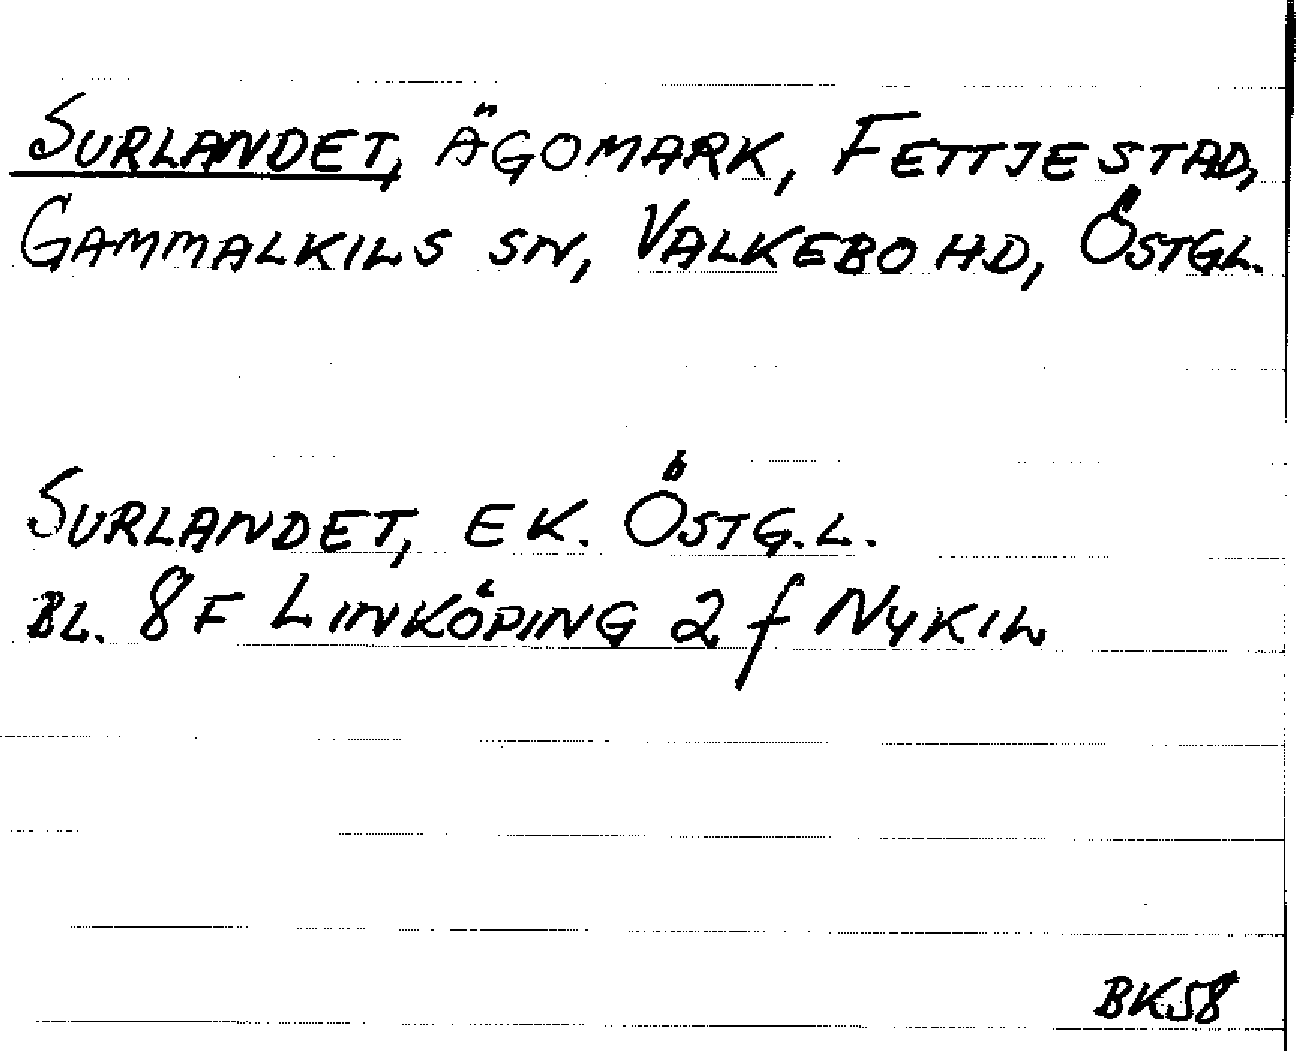 SURLANDET, ÄGOMARK, FETTJESTAD,
GAMMALKILS SN, VALKEBO HD, ÖSTGL.
SURLANDET, EK. ÖSTG.L.
BL. 8F LINKÖPING 2f NYKIL
BK58